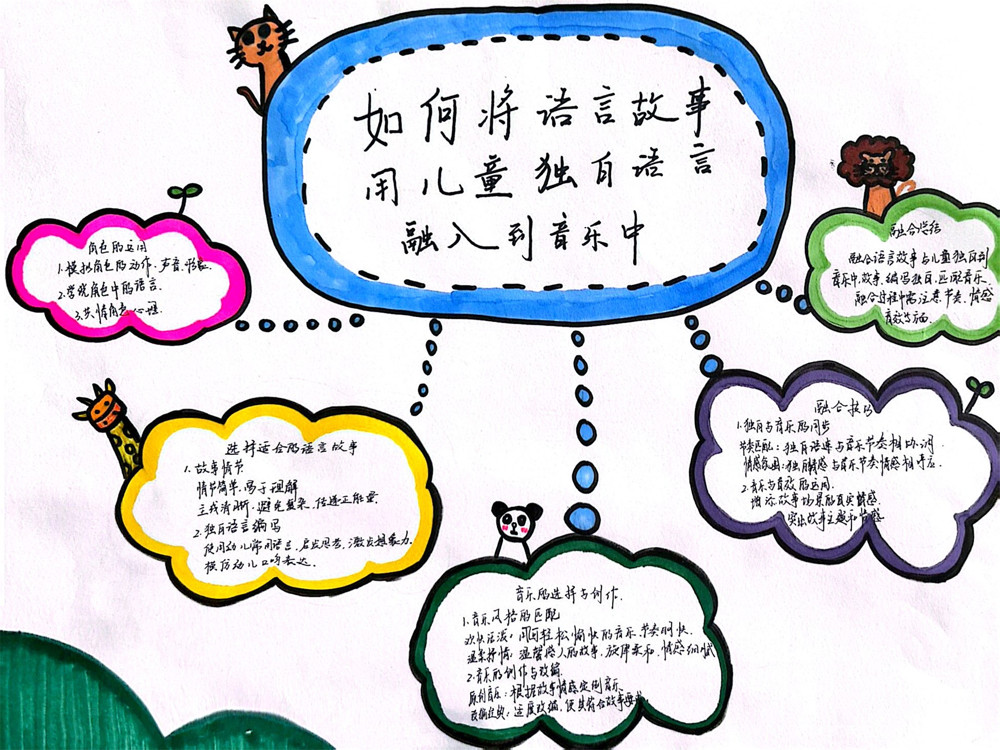 如何将语言故事
用儿童独自语言
融入到音乐中
角色的运用
1.模拟角色的动作、声音、形象.
2.学说角色中的语言.
3.共情角色心理.
选择适合的语言故事
1.故事情节
情节简单.易于理解
主线清晰.避免复杂.传递正能量
2.独自语言编写
使用幼儿常用语言.启发思考,激发想象力.
模仿幼儿口吻表达.
音乐的选择与创作.
1.音乐风格的匹配
欢快活泼:用轻松愉快的音乐.节奏明快.
温柔抒情:温馨感人的故事.旋律柔和.情感细腻
2.音乐的创作与改编.
原创音乐:根据故事情感定制音乐.
改编经典:适度改编.使其符合故事要求.
融合技巧
1.独自与音乐的同步
节奏匹配:独自语速与音乐节奏相协调.
情感氛围:独自情感与音乐节奏情感相呼应.
2.音乐与音效的运用.
增添故事场景的真实情感.
突出故事主题和情感
融合总结
融合语言故事与儿童独自到
音乐中.故事、编写独自.匹配音乐.
融合过程中需注意节奏、情感
音效等方面.